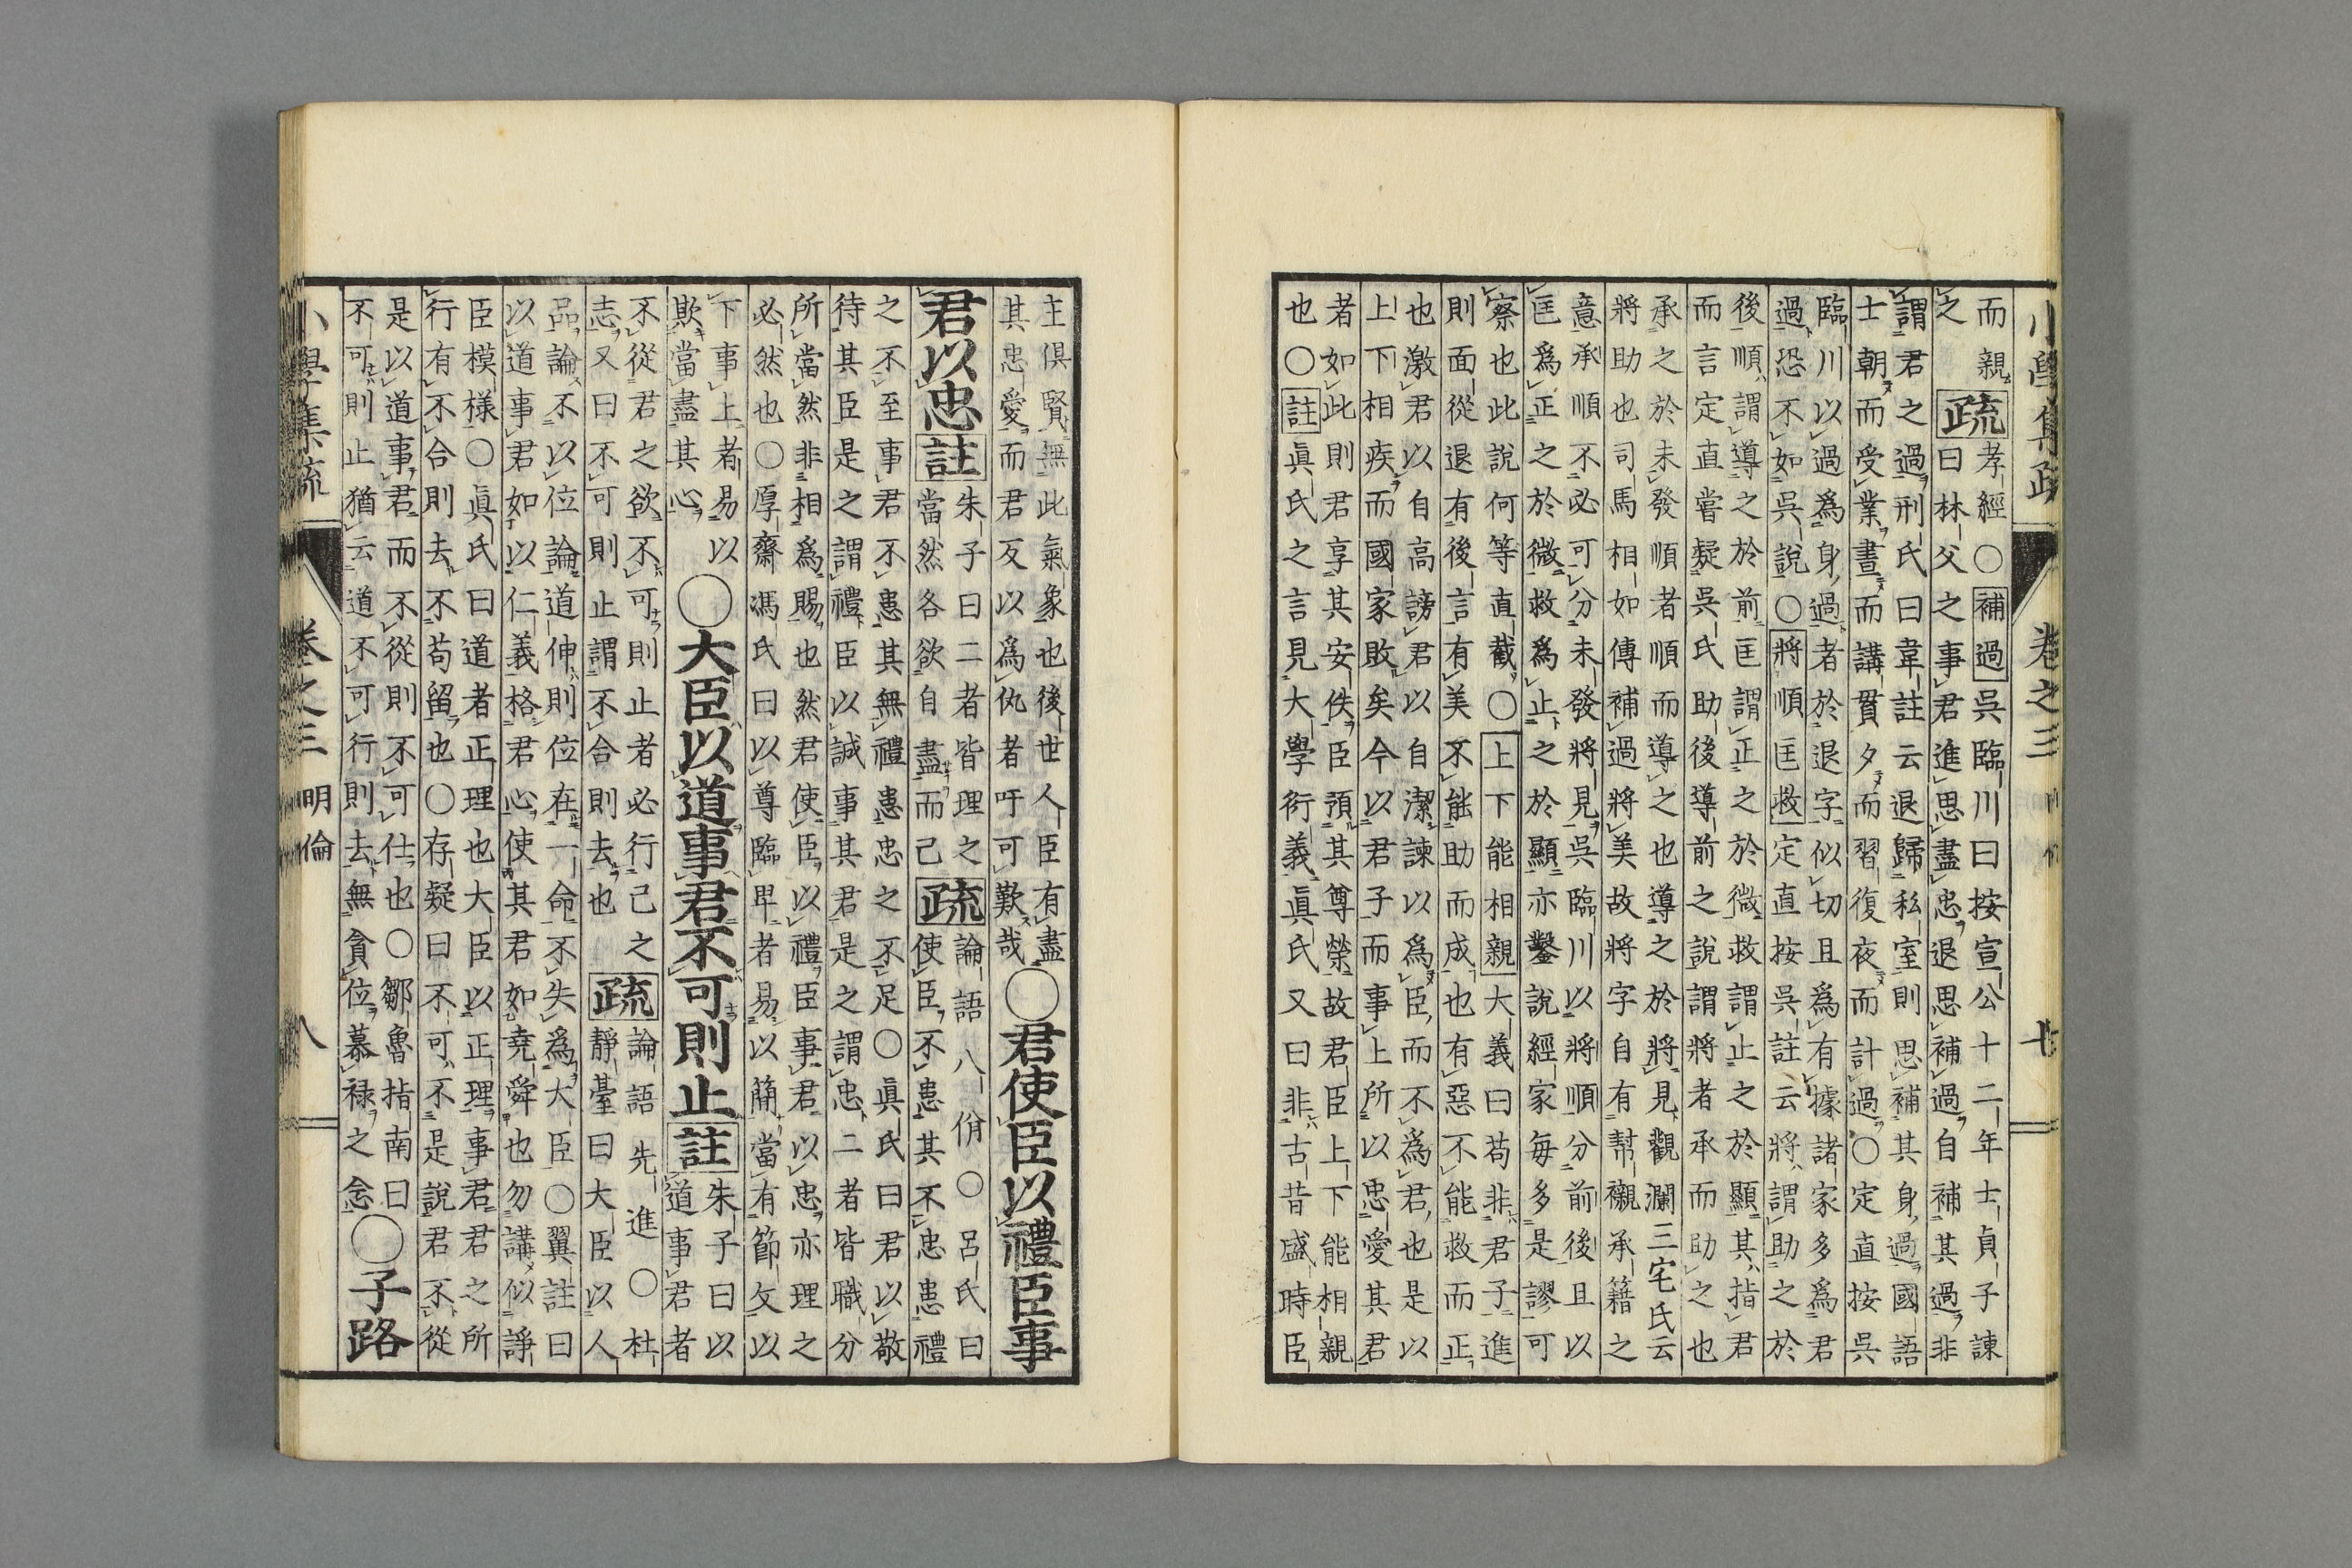 而親
疏
孝經○補過吳臨川曰按宣公十二年士貞子諫
之
曰林父之事君進思盡忠退思補過自補其過非
謂君之過刑氏曰韋註云退歸私室則思補其身過國語
士朝而受業晝而講貫夕而習復夜而計過○定直按吳
臨川以過爲身過者於退字似切且爲有據諸家多爲君
過恐不如吳說○將順匡救定直按吳註云將謂助之於
後順謂導之於前匡謂正之於微救謂止之於顯其指君
而言定直嘗疑吳氏助後導前之說謂將者承而助之也
承之於未發順者順而導之也導之於將見觀瀾三宅氏云
將助也司馬相如傳補過將美故將字自有幇襯承籍之
意承順不必可分未發將見吳臨川以將順分前後且以
匡爲正之於微救爲止之於顯亦鑿說經家每多是謬可
察也此說何等直截○上下能相親大義曰苟非君子進
則面從退有後言有美不能助而成也有惡不能救而正
也激君以自高謗君以自潔諫以爲臣而不爲君也是以
上下相疾而國家敗矣今以君子而事上所以忠愛其君
者如此則君享其安佚臣預其尊榮故君臣上下能相親
也○註眞氏之言見大學衍義眞氏又曰非古昔盛時臣
小學集疏　卷之三　七
主俱賢無此氣象也後世人臣有盡
其忠愛而君反以爲仇者吁可歎哉
○君使臣以禮臣事
君以忠
註
朱子曰二者皆理之
當然各欲自盡而已
疏
論語八佾○呂氏曰
使臣不患其不忠患禮
之不至事君不患其無禮患忠之不足○眞氏曰君以敬
待其臣是之謂禮臣以誠事其君是之謂忠二者皆職分
所當然非相爲賜也然君使臣以禮臣事君以忠亦理之
必然也○厚齋馮氏曰以尊臨卑者易以簡當有節文以
下事上者易以
欺當盡其心
○大臣以道事君不可則止
註
朱子曰以
道事君者
不從君之欲不可則止者必行己之
志又曰不可則止謂不合則去也
疏
論語先進○杜
靜臺曰大臣以人
品論不以位論道伸則位在一命不失爲大臣○翼註曰
以道事君如以仁義格君心使其君如堯舜也勿講似諍
臣模樣○眞氏曰道者正理也大臣以正理事君君之所
行有不合則去不苟留也○存疑曰不可不是說君不從
是以道事君而不從則不可仕也○鄒魯指南曰
不可則止猶云道不可行則去無貪位慕祿之念
○子路
小學集疏　卷之三　明倫　八